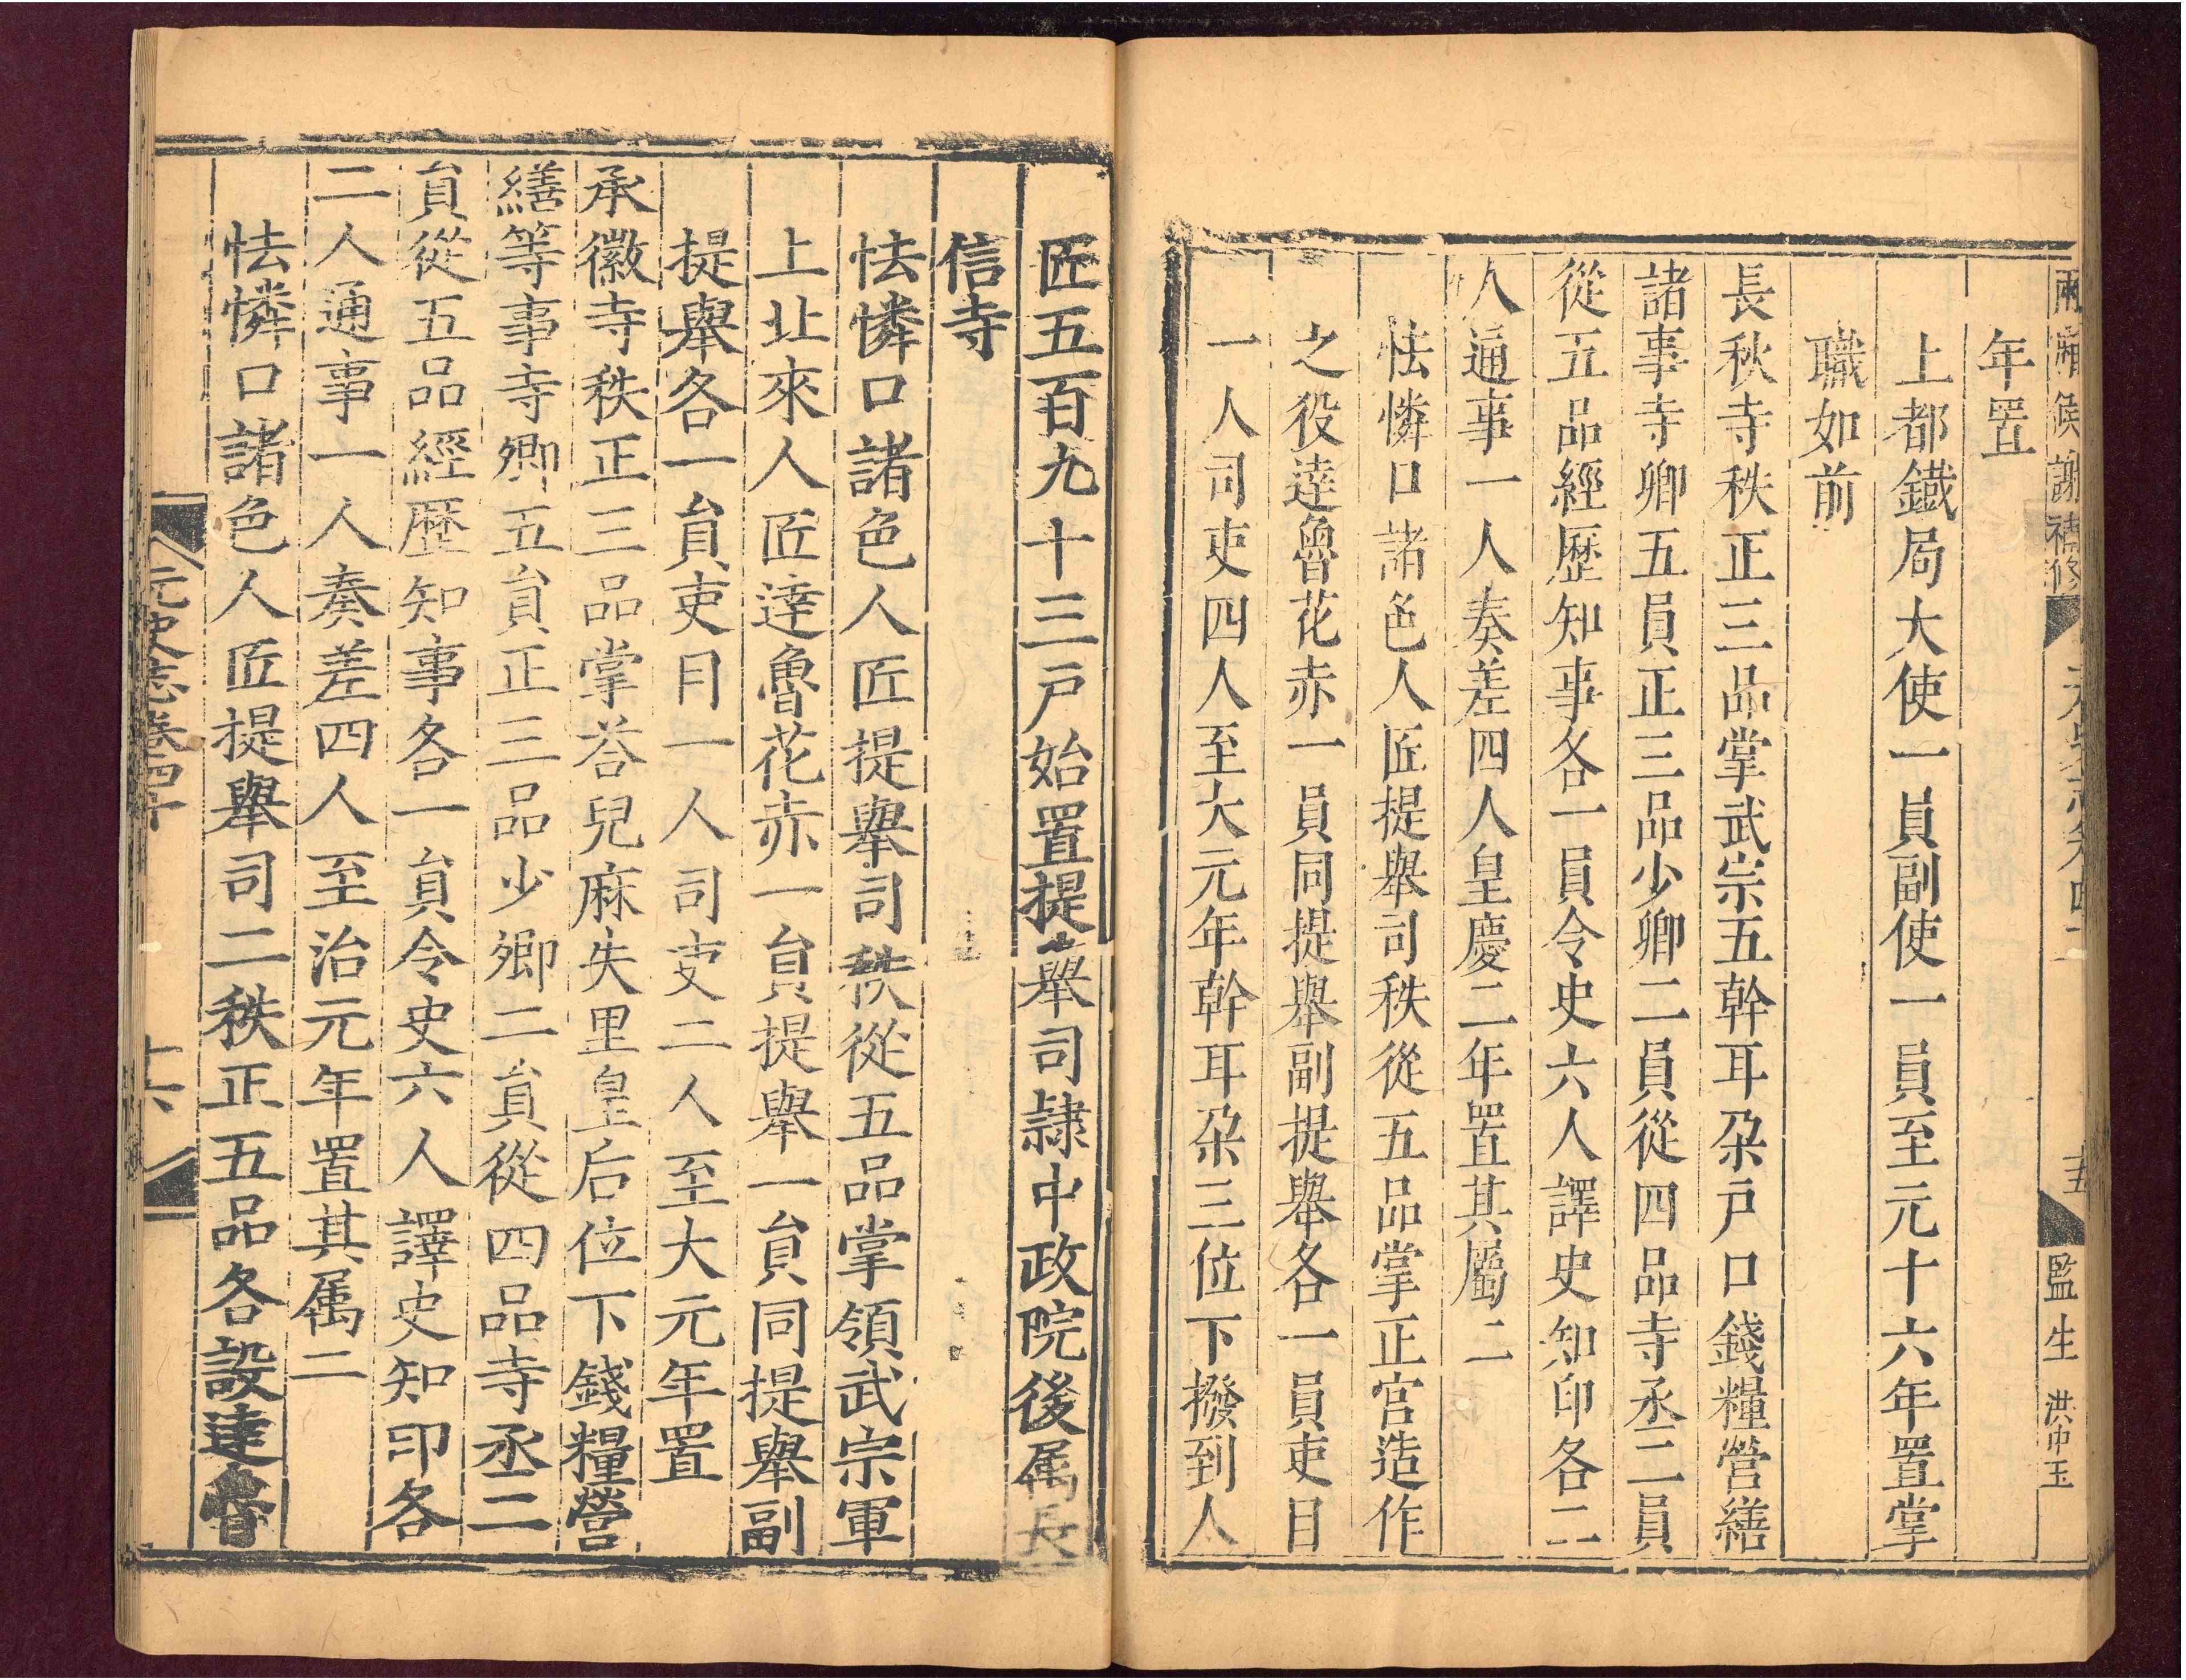 監生 洪中玉
年置
上都鐵局大使一員副使一員至元十六年置掌
職如前
長秋寺秩正三品掌武宗五幹耳朶戸口錢糧營繕
諸事寺卿五員正三品少卿二員從四品寺丞二員
從五品經歷知事各一員令史六人譯史知印各二
人通事一人奏差四人皇慶二年置其屬二
怯憐口諸色人匠提舉司秩從五品掌正宮造作
之役達魯花赤一員同提舉副提舉各一員吏目
一人司吏四人至大元年幹耳朶三位下撥到人
匠五百九十三戸始置提舉司隷中政院後属長
信寺
怯憐口諸色人匠提舉司秩從五品掌領武宗軍
上北來人匠達魯花赤一貟提舉一貟同提舉副
提舉各一貟吏目一人司吏二人至大元年置
承徽寺秩正三品掌荅兒麻失里皇后位下錢糧營
繕等事寺卿五貟正三品少卿二貟從四品寺丞二
貟從五品經歷知事各一貟令史六人譯史知印各
二人通事一人奏差四人至治元年置其属二
怯憐口諸色人匠提舉司二秩正五品各設達魯
元史志卷四十
十六